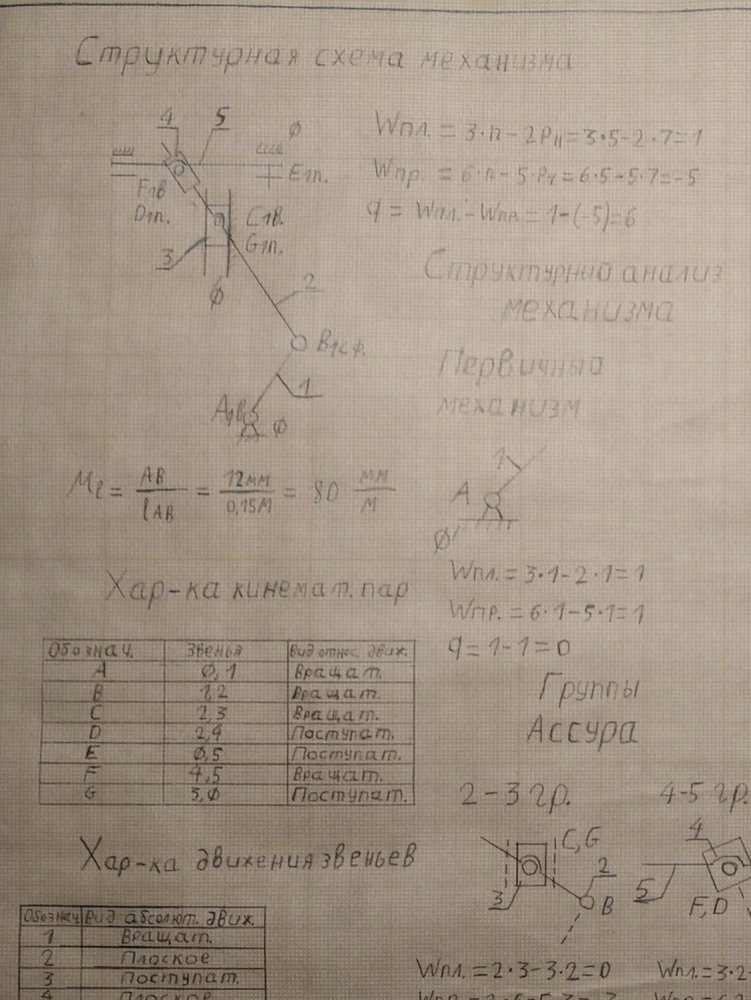 Структурная схема механизма
4 5 ∅
E1п.
F1в
D1п.
C1в.
G1п.
3
∅
2
B1сф.
1
A1в
∅
Wпл. = 3·n - 2P_н = 3·5 - 2·7 = 1
Wпр. = 6·n - 5·P_н = 6·5 - 5·7 = -5
q = Wпл. - Wпр. = 1-(-5) = 6
Структурний анализ
механизма
Первичный
механизм
1
A
∅
Mℓ = AB/ℓAB = 12мм/0,15м = 80 мм/м
Wпл. = 3·1-2·1=1
Wпр. = 6·1-5·1=1
q = 1-1=0
Хар-ка кинемат. пар
Обознач. Звенья Вид относ. движ.
A ∅,1 Вращат.
B 1,2 Вращат.
C 2,3 Вращат.
D 2,4 Поступат.
E ∅,5 Поступат.
F 4,5 Вращат.
G 3,∅ Поступат.
Группы
Ассура
2-3 гр. 4-5 гр.
C,G
2
3
B
4
5
F,D
Wпл. = 2·3-3·2=0 Wпл. = 3·2-
Хар-ка движения звеньев
Обознач. Вид абсолют. движ.
1 Вращат.
2 Плоское
3 Поступат.
4 Плоское